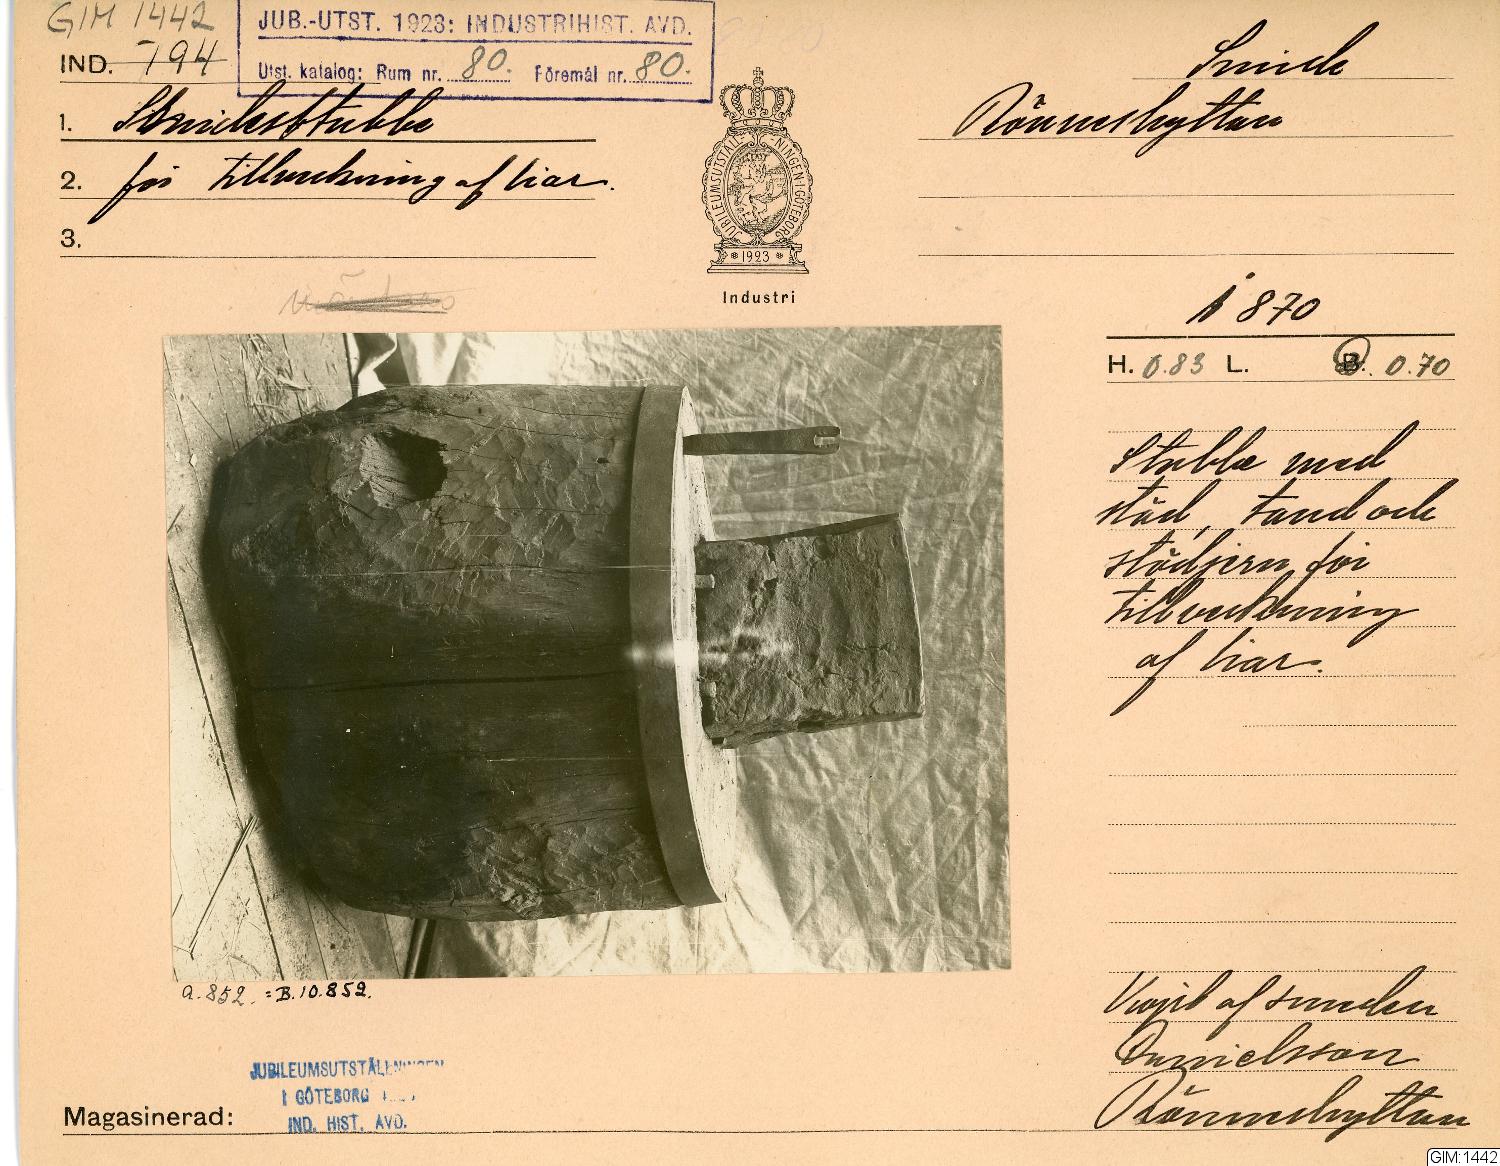 GIM 1442
IND. 794
JUB.-UTST. 1923: INDUSTRIHIST. AVD.
Utst. katalog: Rum nr. 80. Föremål nr. 80.
1. Smidesstubbe
2. för tillverkning af liar.
3.
JUBILEUMSUTSTÄLLNINGEN I GÖTEBORG
1923
Industri
Smide
Rönneshyttan
1870
H. 0.83 L. B. 0.70
Stubbe med
städ, tand och
stödjern för
tillverkning
af liar.
a. 852. = B.10.852.
Köpt af smeden
Danielsson
Rönneshyttan
JUBILEUMSUTSTÄLLNINGEN
I GÖTEBORG
IND. HIST. AVD.
Magasinerad:
GIM:1442